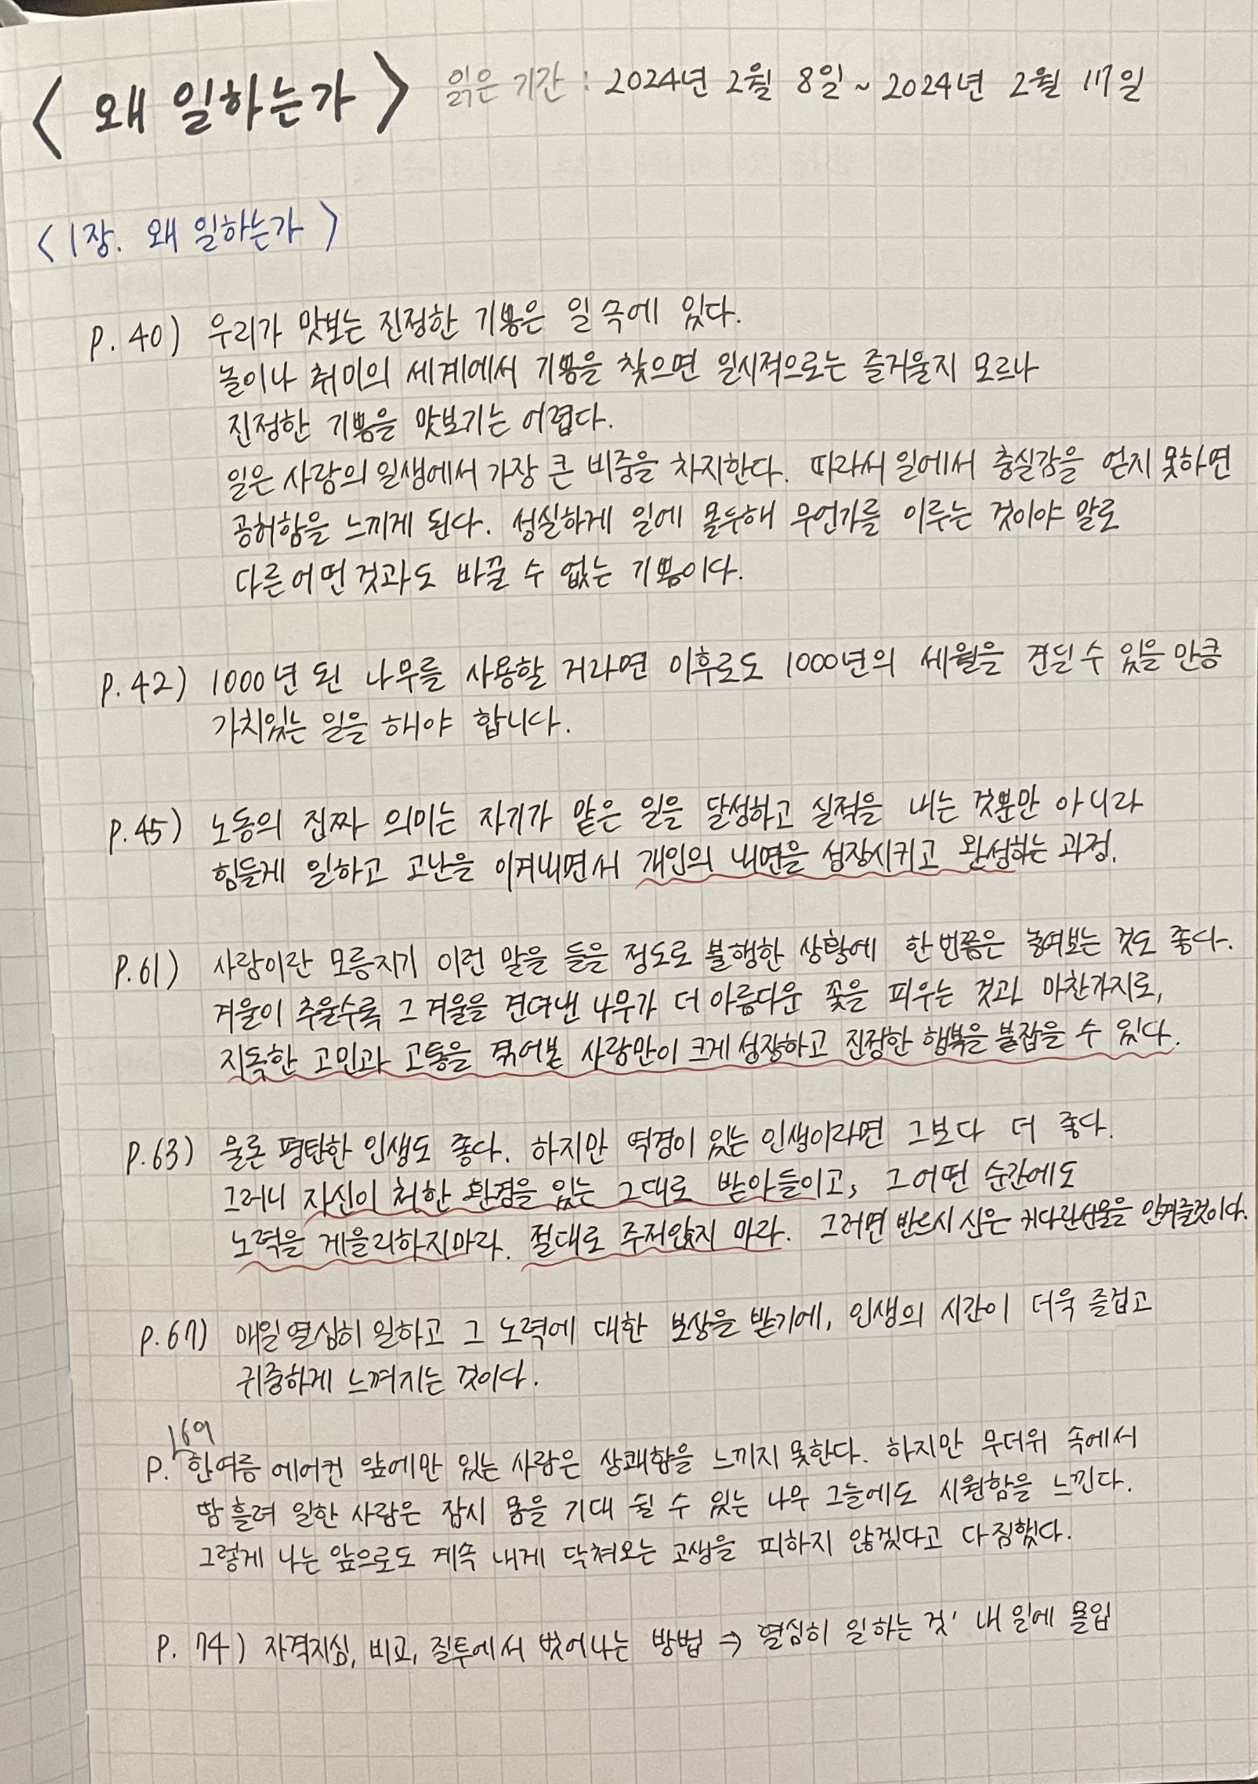 <왜 일하는가> 읽은 기간 : 2024년 2월 8일 ~ 2024년 2월 17일
<1장. 왜 일하는가>
P. 40) 우리가 맛보는 진정한 기쁨은 일 속에 있다.
놀이나 취미의 세계에서 기쁨을 찾으면 일시적으로는 즐거울지 모르나
진정한 기쁨을 맛보기는 어렵다.
일은 사람의 일생에서 가장 큰 비중을 차지한다. 따라서 일에서 충실감을 얻지 못하면
공허함을 느끼게 된다. 성실하게 일에 몰두해 무언가를 이루는 것이야 말로
다른 어떤 것과도 바꿀 수 없는 기쁨이다.
P. 42) 1000년 된 나무를 사용할 거라면 이후로도 1000년의 세월을 견딜 수 있을 만큼
가치있는 일을 해야 합니다.
P. 45) 노동의 진짜 의미는 자기가 맡은 일을 달성하고 실적을 내는 것뿐만 아니라
힘들게 일하고 고난을 이겨내면서 개인의 내면을 성장시키고 완성하는 과정.
P. 61) 사람이란 모름지기 이런 말을 들을 정도로 불행한 상황에 한 번쯤은 놓여보는 것도 좋다.
겨울이 추울수록 그 겨울을 견뎌낸 나무가 더 아름다운 꽃을 피우는 것과 마찬가지로,
지독한 고민과 고통을 겪어본 사람만이 크게 성장하고 진정한 행복을 붙잡을 수 있다.
P. 63) 물론 평탄한 인생도 좋다. 하지만 역경이 있는 인생이라면 그보다 더 좋다.
그러니 자신이 처한 환경을 있는 그대로 받아들이고, 그 어떤 순간에도
노력을 게을리하지마라. 절대로 주저앉지 마라. 그러면 반드시 신은 커다란선물을 안겨줄것이다.
P. 67) 매일 열심히 일하고 그 노력에 대한 보상을 받기에, 인생의 시간이 더욱 즐겁고
귀중하게 느껴지는 것이다.
P. 169 한여름 에어컨 앞에만 있는 사람은 상쾌함을 느끼지 못한다. 하지만 무더위 속에서
땀 흘려 일한 사람은 잠시 몸을 기대 쉴 수 있는 나무 그늘에도 시원함을 느낀다.
그렇게 나는 앞으로도 계속 내게 닥쳐오는 고생을 피하지 않겠다고 다짐했다.
P. 74) 자격지심, 비교, 질투에서 벗어나는 방법 ⇒ '열심히 일하는 것' 내 일에 몰입